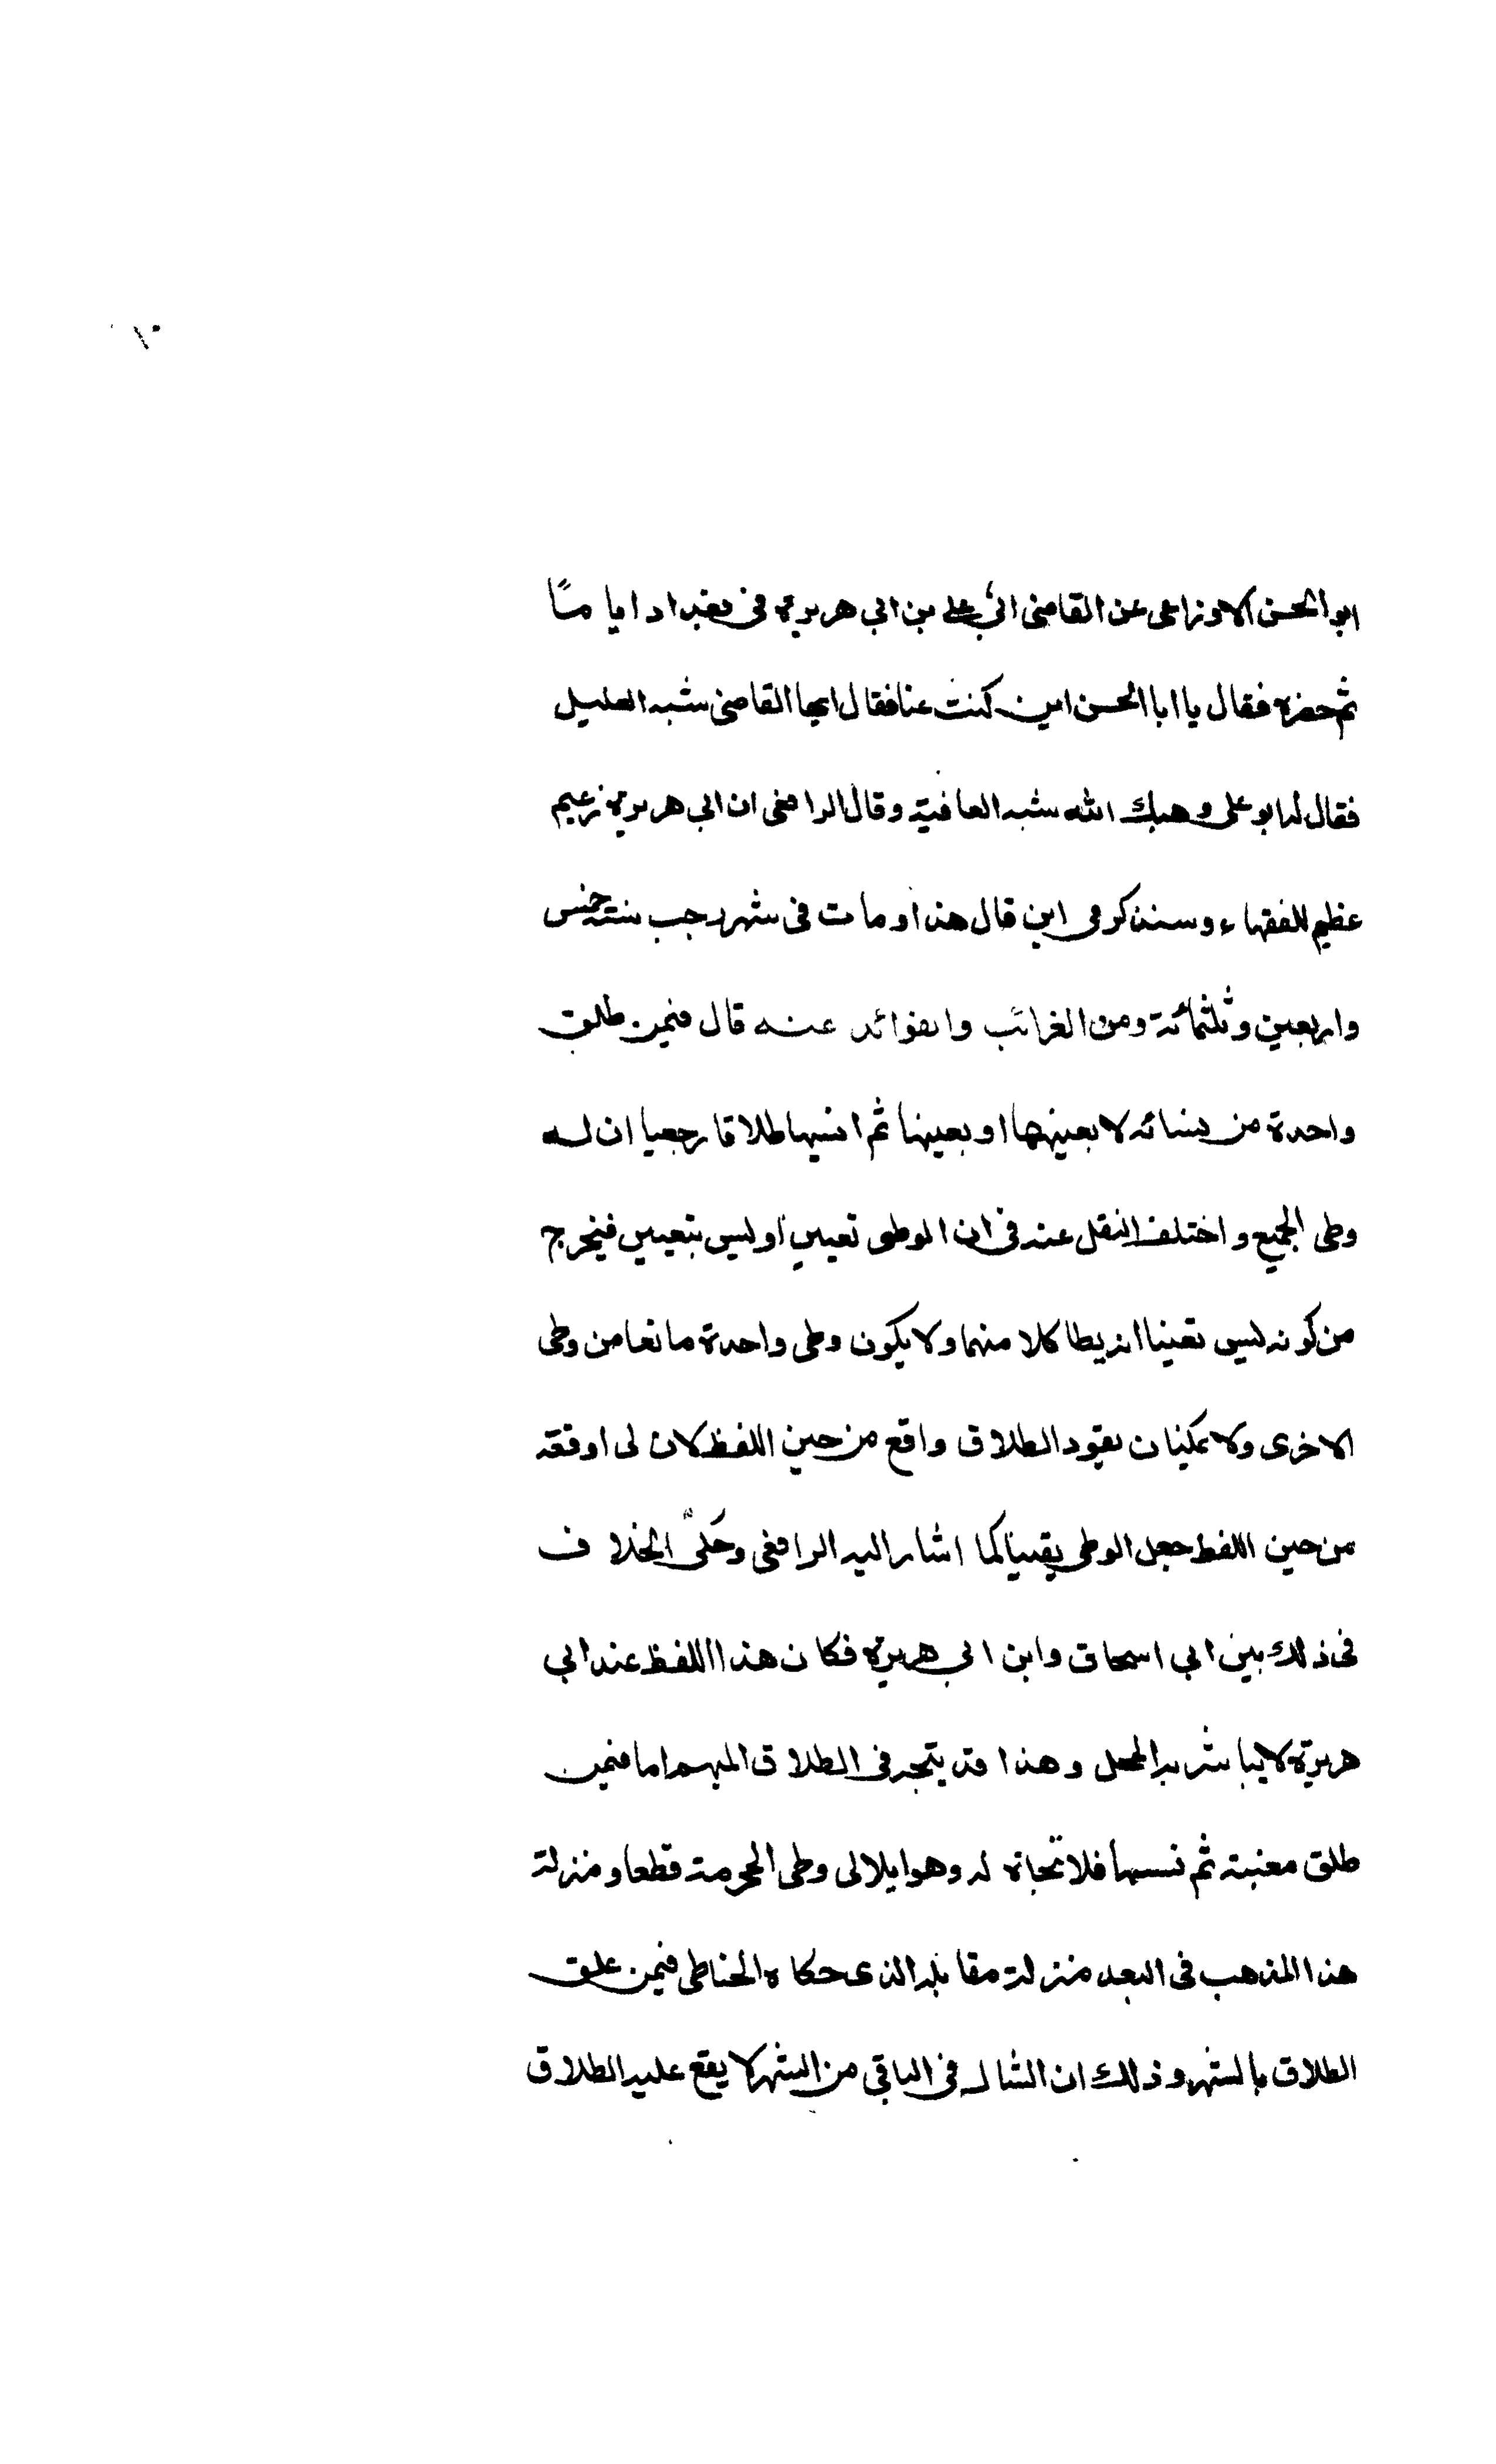 ١٠
ابو الحسن الاوزاعى عن القاضى ابى على بن ابي هريرة فى بغداد اياماً
ثم حضره فقال يا ابا الحسن اين كنت عنا فقال ايها القاضى شبه العليل
فقال له ابو على وهبك الله شبه العافية وقال الرافعى ان ابي هريرة زعيم
عظيم للفقهاء وسنذكر فى اين قال هذا ومات فى شهر رجب سنته خمس
واربعين وثلثمائة ومن الغرائب والفوائد عنه قال فيمن طلق
واحدة من نسائه لا بعينها او بعينها ثم انسيها طلاقا رجعيا ان له
وطى الجميع واختلف النقل عنه فى ان الوطى تعيين او ليس بتعيين فيخرج
من كونه ليس تعينا انه يطا كلا منهما ولا يكون وطى واحدة مانعا من وطى
الاخرى ولا يمكننا ان يقود الطلاق واقع من حين اللفظ لان لى اوقفه
من حين اللفظ جعل الوطى يقينا كما اشار اليه الرافعى وحكى الخلاف
فى ذلك بين ابي اسحاق وابن ابى هريرة فكان هذا اللفظ عند ابي
هريرة لا يباشر به المحل وهذا قد يتجه فى الطلاق المبهم اما فيمن
طلق معنية ثم نسيها فلا تجاة له وهو ايلا لى وطى المحرمة قطعا ومنزلة
هذا المذهب فى البعد منزلة مقابله الذى حكاه الحناطى فيمن علق
الطلاق بالشهر وذلك ان الشاله فى الباقى من الشهر لا يقع عليه الطلاق